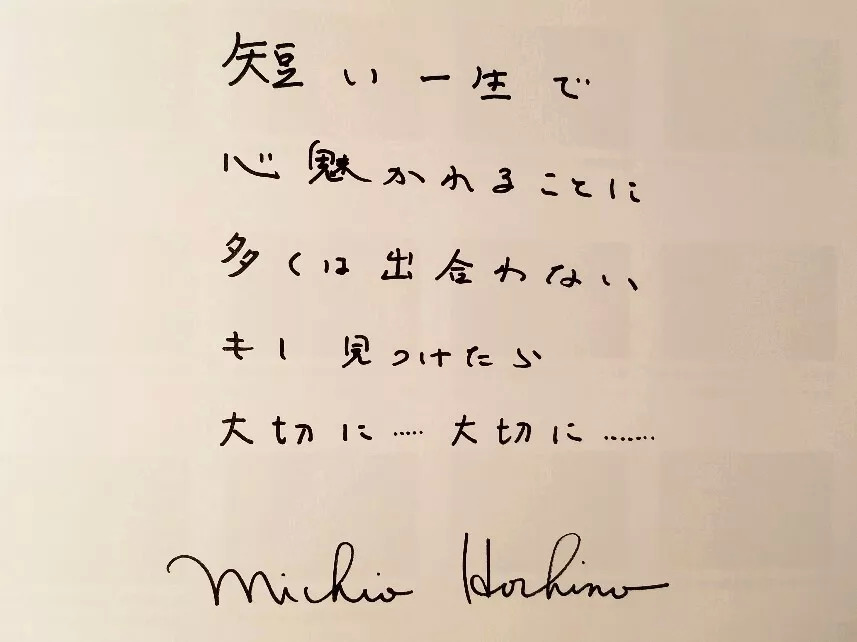 短い一生で
心魅かれることに
多くは出合わない
もし見つけたら
大切に…‥大切に…‥‥
Michio Hoshino